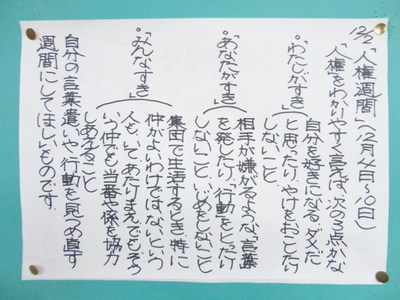 12/2「人権週間」(12月4日〜10日)
「人権」をわかりやすく言えば、次の3点かな
「わたしがすき」
自分を好きになる。ダメだ
と思ったり、やけをおこしたり
しないこと
「あなたがすき」
相手が嫌がるような「言葉」
を発したり、「行動」をとったり
しないこと、いじめをしないこと
「みんなすき」
集団で生活するとき、特に
仲がよいわけではないという
人もいてあたりまえでもそう
いう仲でも、当番や係を協力
しあえること
自分の言葉遣いや、行動を見つめ直す
週間にしてほしいものです。